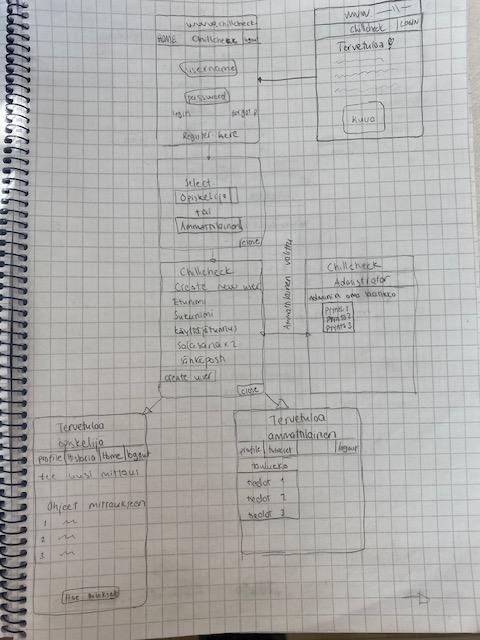 www.chillcheck
HOME Chillcheck
username
password
login forgot?
Register here
www.
chillcheck LOGIN
Tervetuloa
Kuva
Select
Opiskelija
tai
Ammattilainen
close
Chillcheck
Create new user
Etunimi
Sukunimi
Käyttäjätunnus
Salasana x2
Sähköposti
create user
close
Ammattilainen valittu
Chillcheck
Adminstrator
oma
Pyyntö 1
Pyyntö 2
Pyyntö 3
Tervetuloa
opiskelija
profile Historia Home logout
tee uusi mittaus
Ohjeet mittaukseen
1
2
3
Hae tulokset
Tervetuloa
ammattilainen
profile logout
taulukko
tiedot 1
tiedot 2
tiedot 3